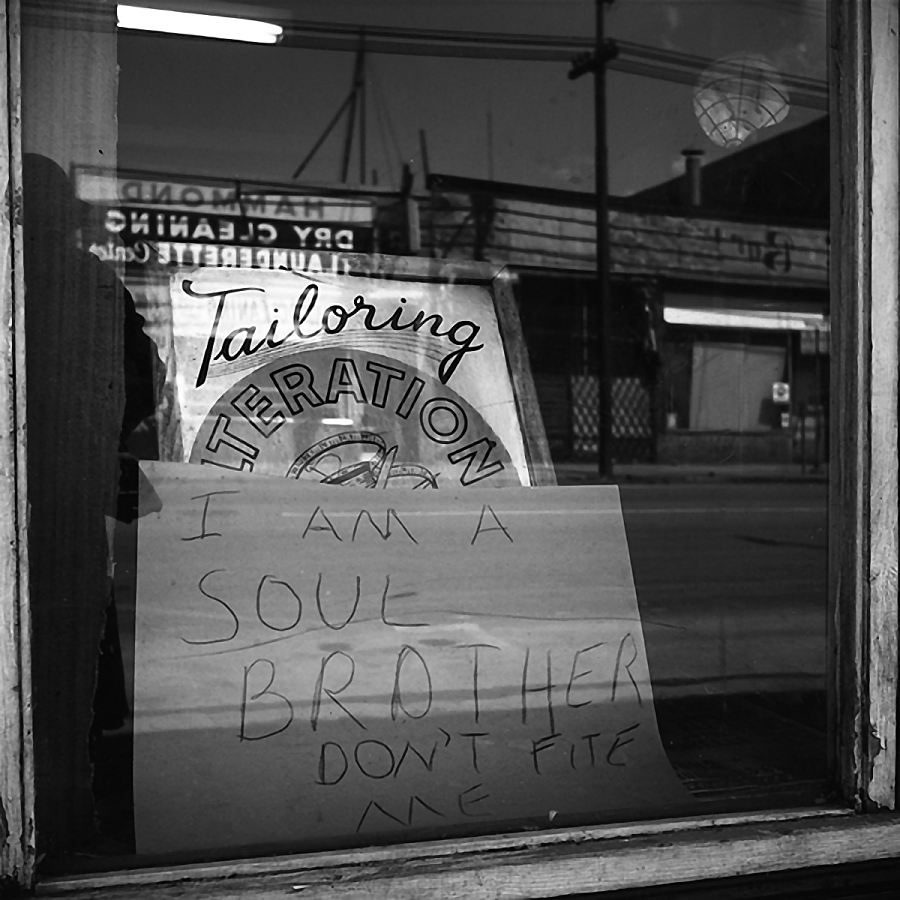 HAMMOND
DRY CLEANING
LAUNDERETTE Center
Tailoring
ALTERATION
I AM A
SOUL
BROTHER
DON'T FITE
ME